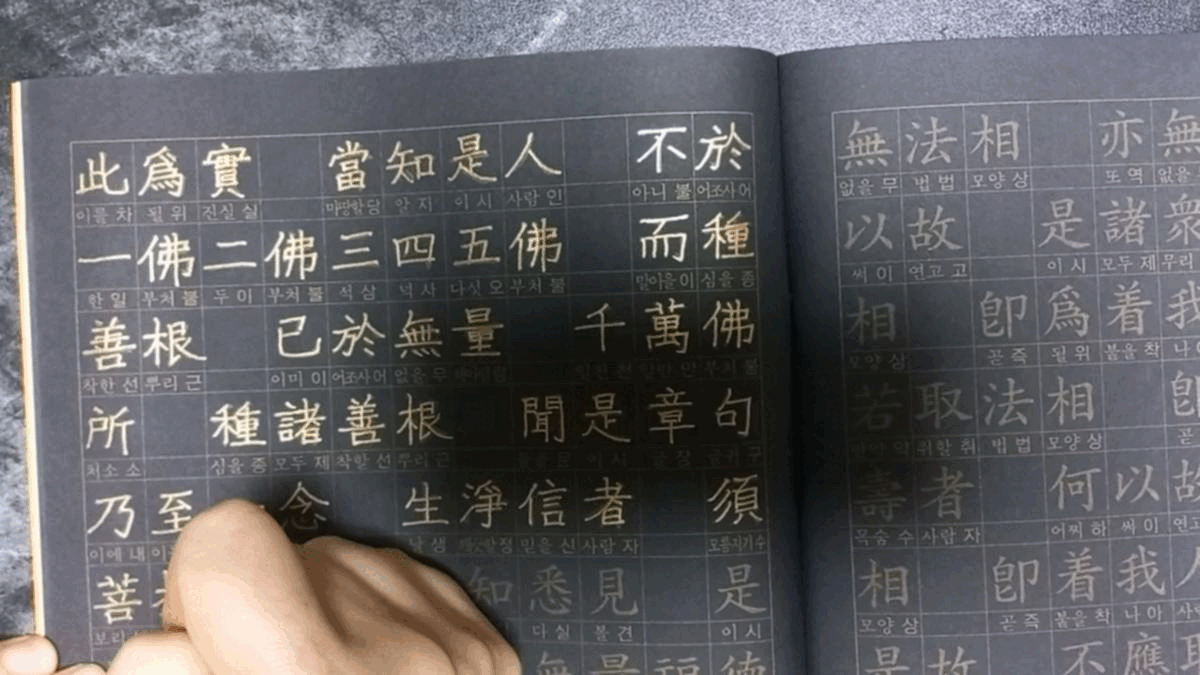 此爲實 當知是人 不於
이를 차 될 위 진실 실 마땅할 당 알 지 이 시 사람 인 아니 불 어조사 어
一佛二佛三四五佛 而種
한 일 부처 불 두 이 부처 불 석 삼 넉 사 다섯 오 부처 불 말이을 이 심을 종
善根 已於無量 千萬佛
착한 선 뿌리 근 이미 이 어조사 어 없을 무 헤아릴 량 일천 천 일만 만 부처 불
所 種諸善根 聞是章句
처소 소 심을 종 모두 제 착할 선 뿌리 근 들을 문 이 시 글 장 글귀 구
乃至 念 生淨信者 須
이에 내 날 생 깨끗할 정 믿을 신 사람 자 모름지기 수
菩 知悉見 是
다 실 볼 견 이 시
無 福德
無法相 亦無
없을 무 법 법 모양 상 또 역 없을
以故 是諸衆
써 이 연고 고 이 시 모두 제 무리
相 卽爲着我
모양 상 곧 즉 될 위 붙을 착 나
若取法相 卽
만약 약 취할 취 법 법 모양 상 곧
壽者 何以故
목숨 수 사람 자 어찌 하 써 이 연
相 卽着我人
모양 상 곧 즉 붙을 착 나 아 사
是故 不應取